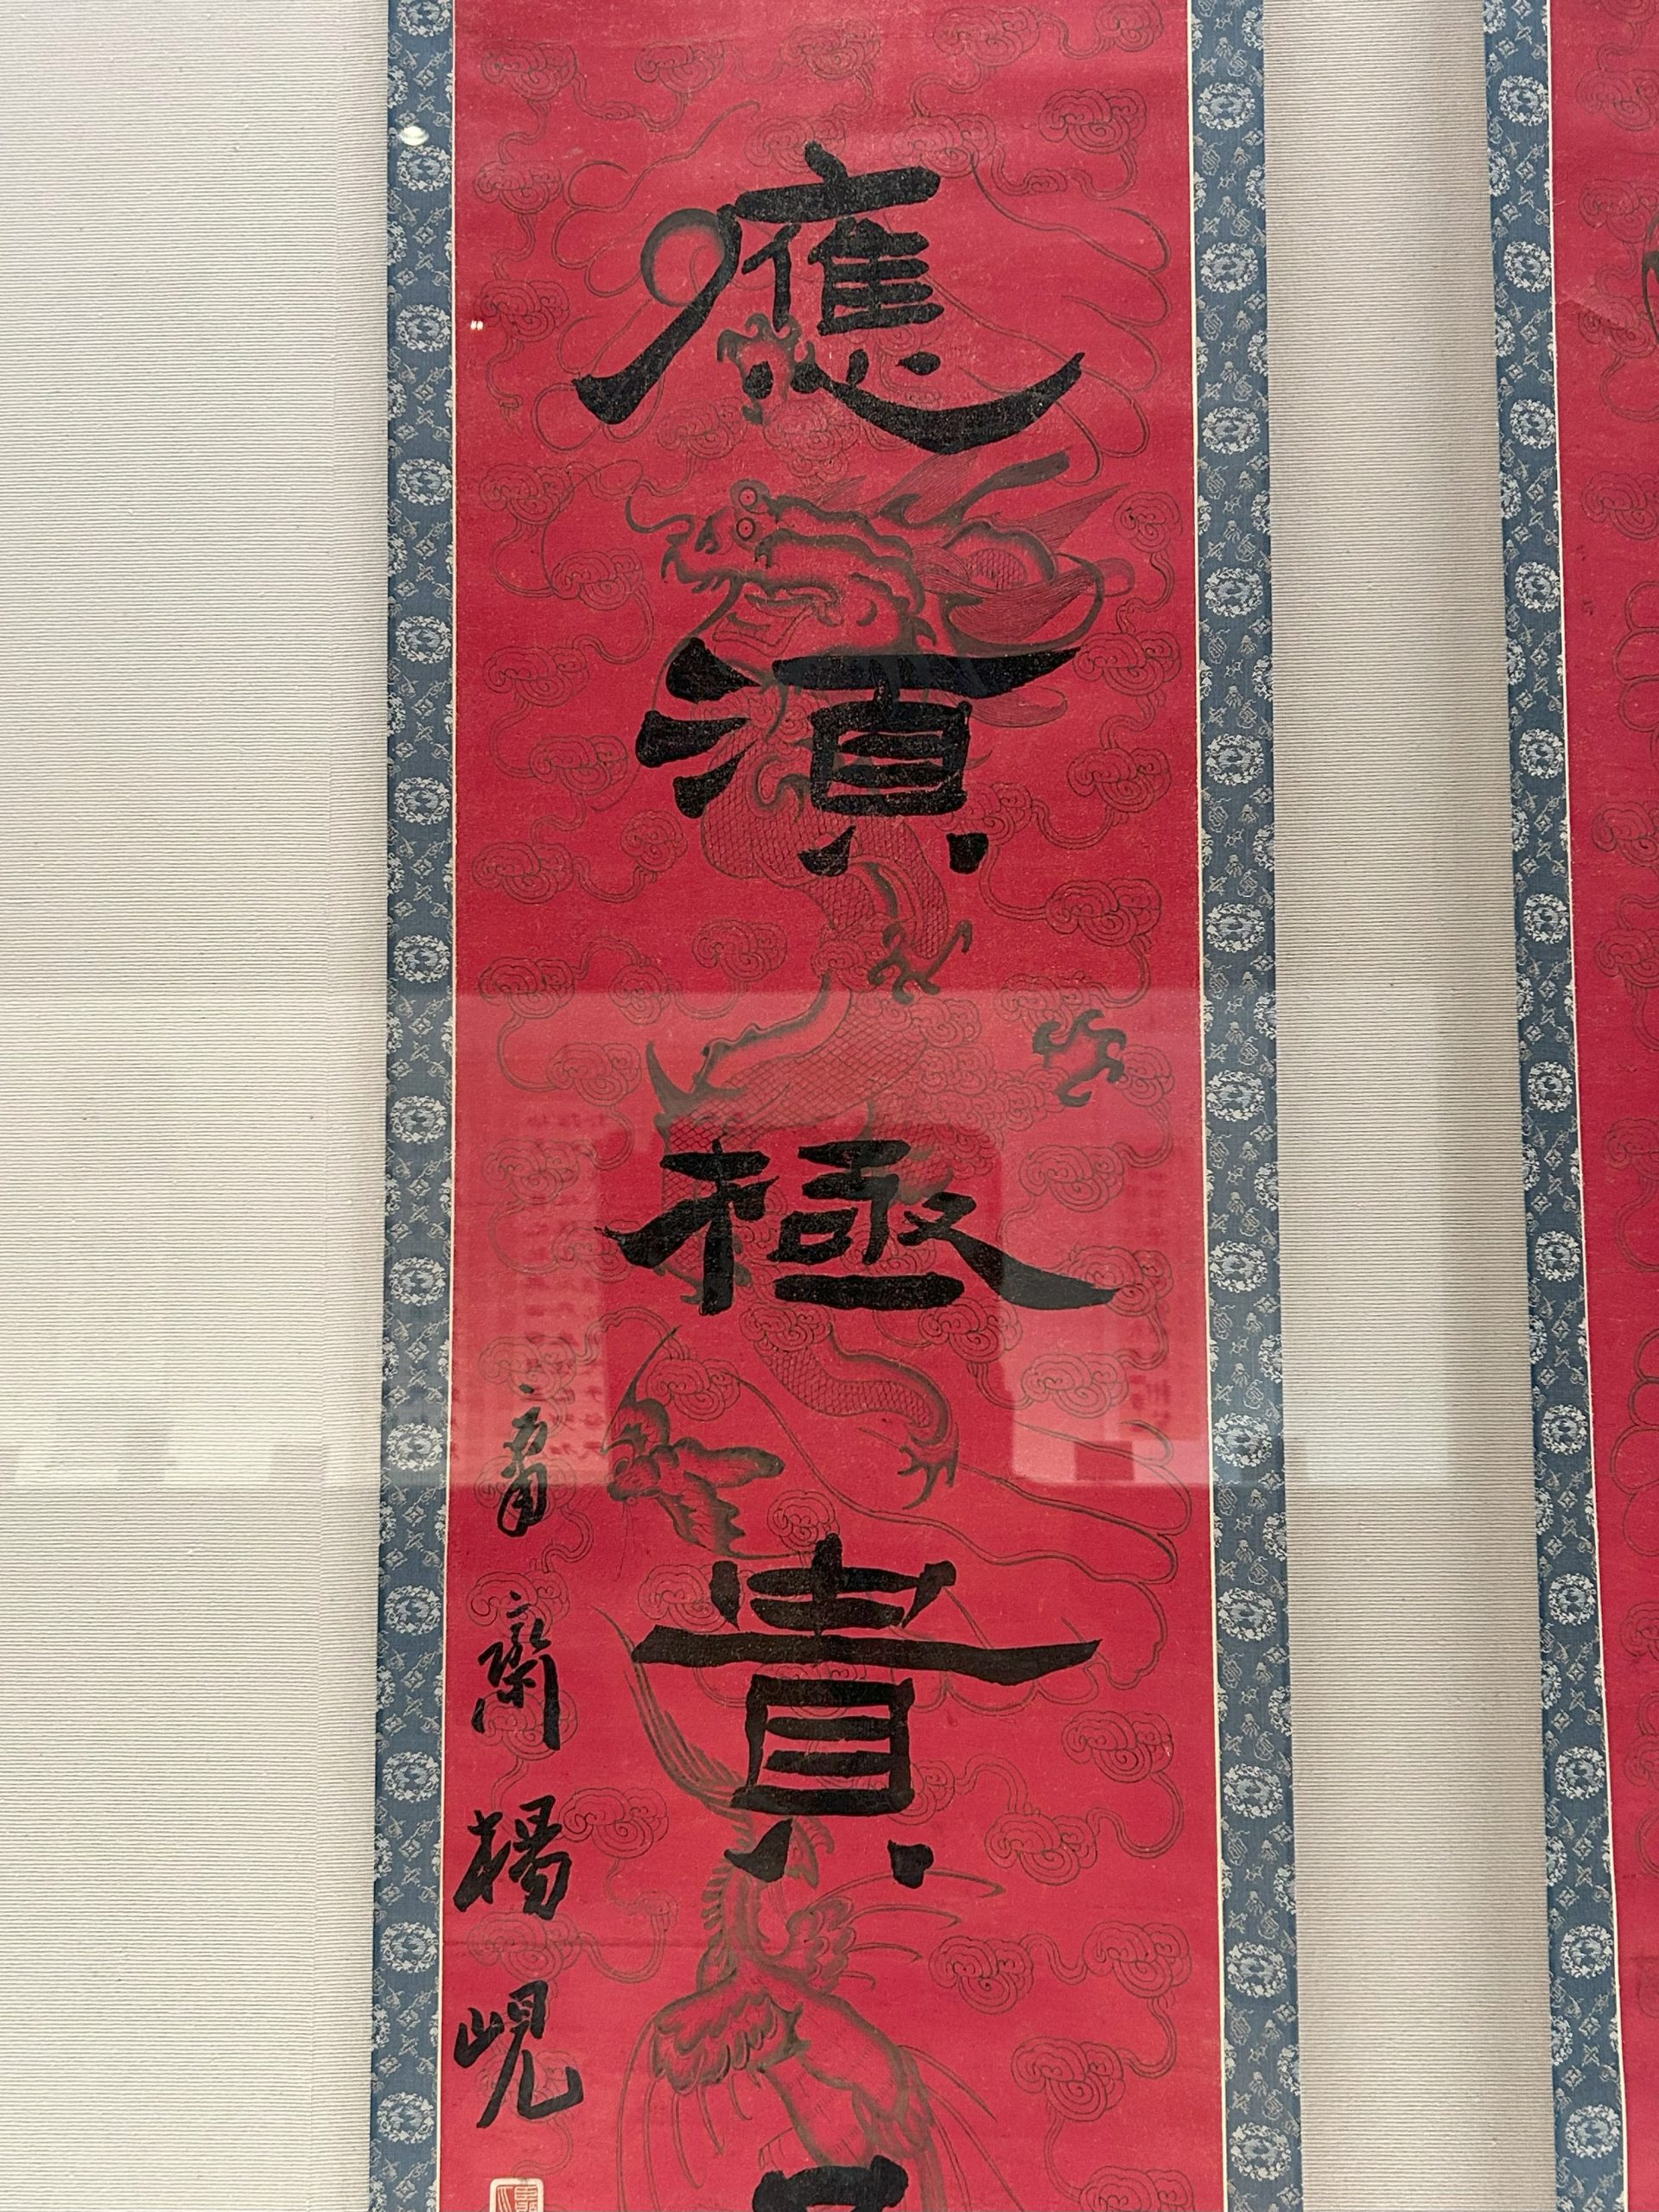 應須極貴
齋楊峴